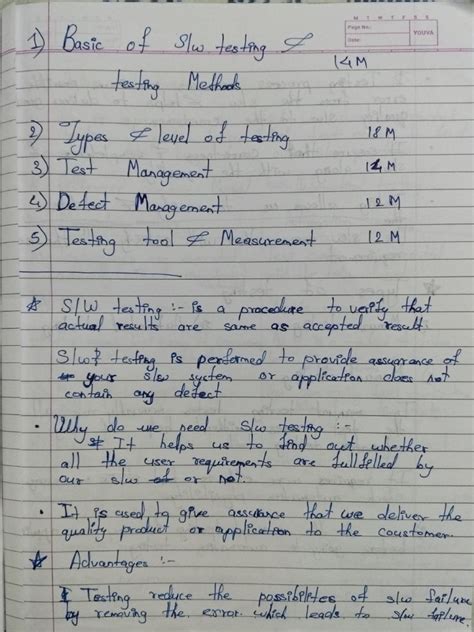 M T W T F S S
Page No.:
Date:
YOUVA
1) Basic of S/w testing &
14M
testing Methods
2) Types & level of testing 18M
3) Test Management 14M
4) Defect Management 12M
5) Testing tool & Measurement 12M
☆ S/W testing :- is a procedure to verify that
actual results are same as accepted result
S/w testing is performed to provide assurance of
your s/w system or application does not
contain any defect
• Why do we need s/w testing :-
It helps us to find out whether
all the user requirements are fullfilled by
our s/w or not.
• It is used to give assurance that we deliver the
quality product or application to the coustomer.
☆ Advantages :-
Testing reduce the possibilites of s/w failure
by removing the error which leads to s/w failure.